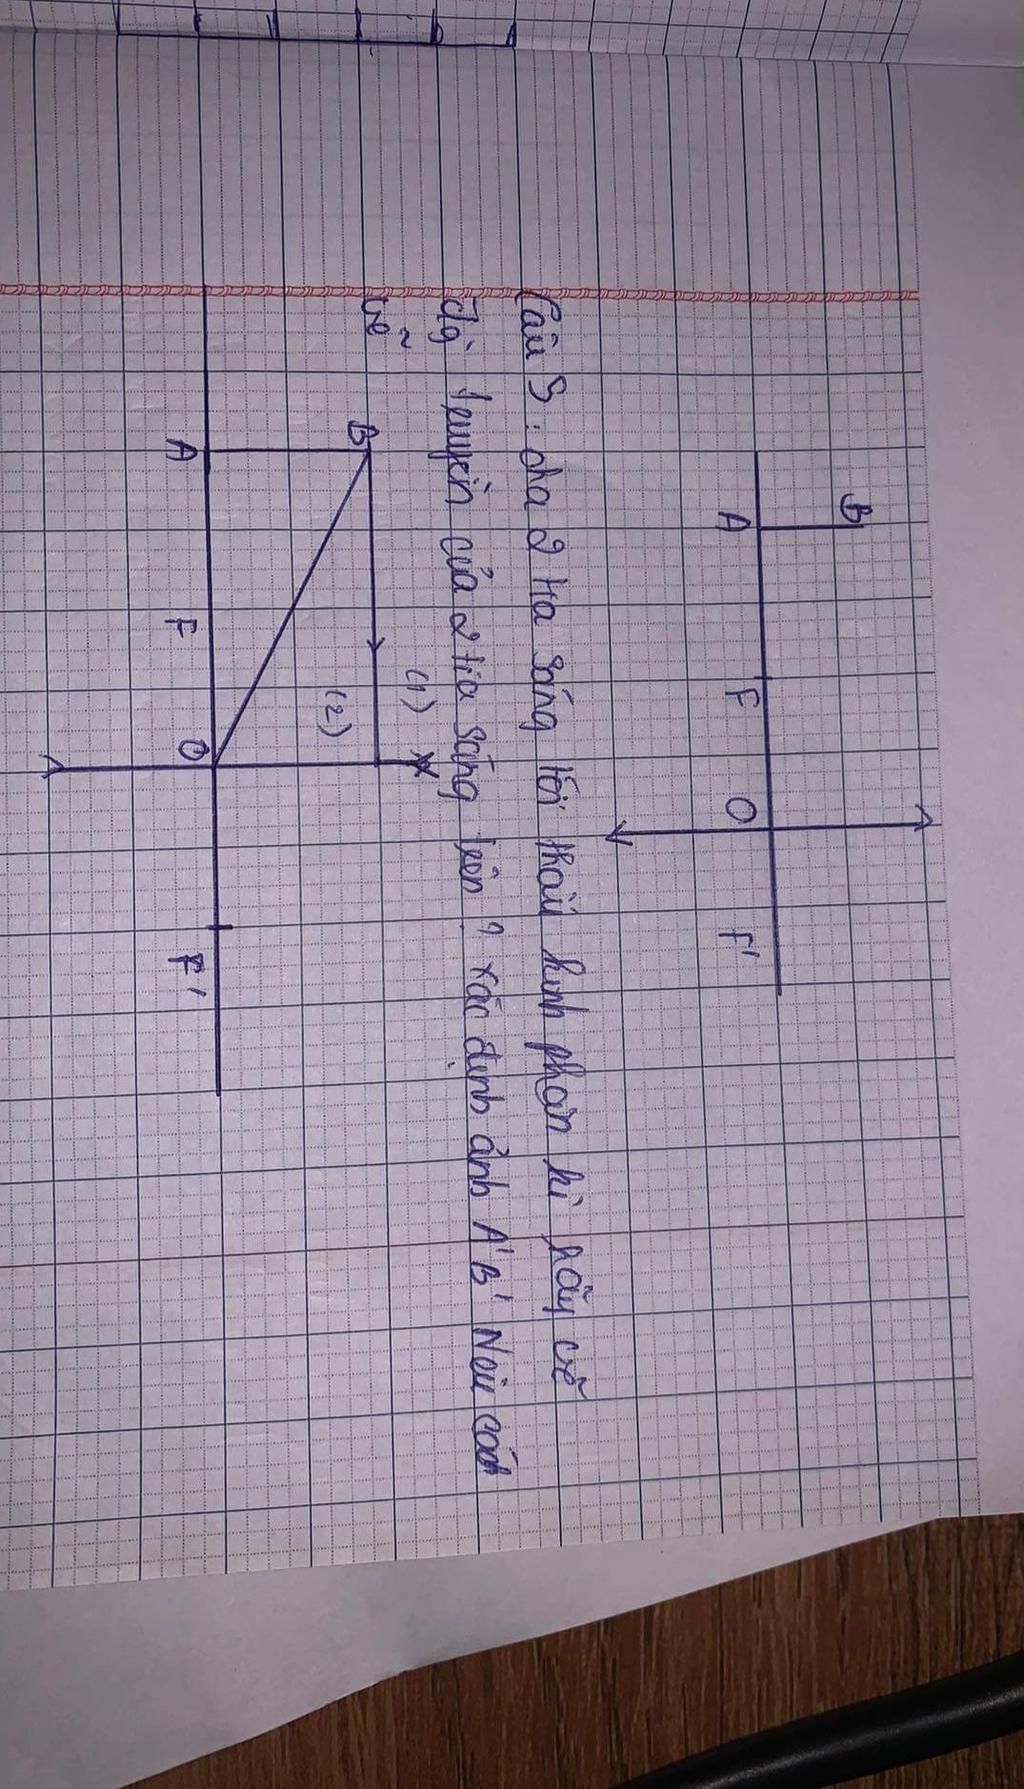 B
A F O F'
Câu 5: cho 2 tia sáng tới thấu kính phân kì hãy vẽ
đg truyền của 2 tia sáng trên? xác định ảnh A'B' Nêu cách
vẽ
B (1)
(2)
A F O F'